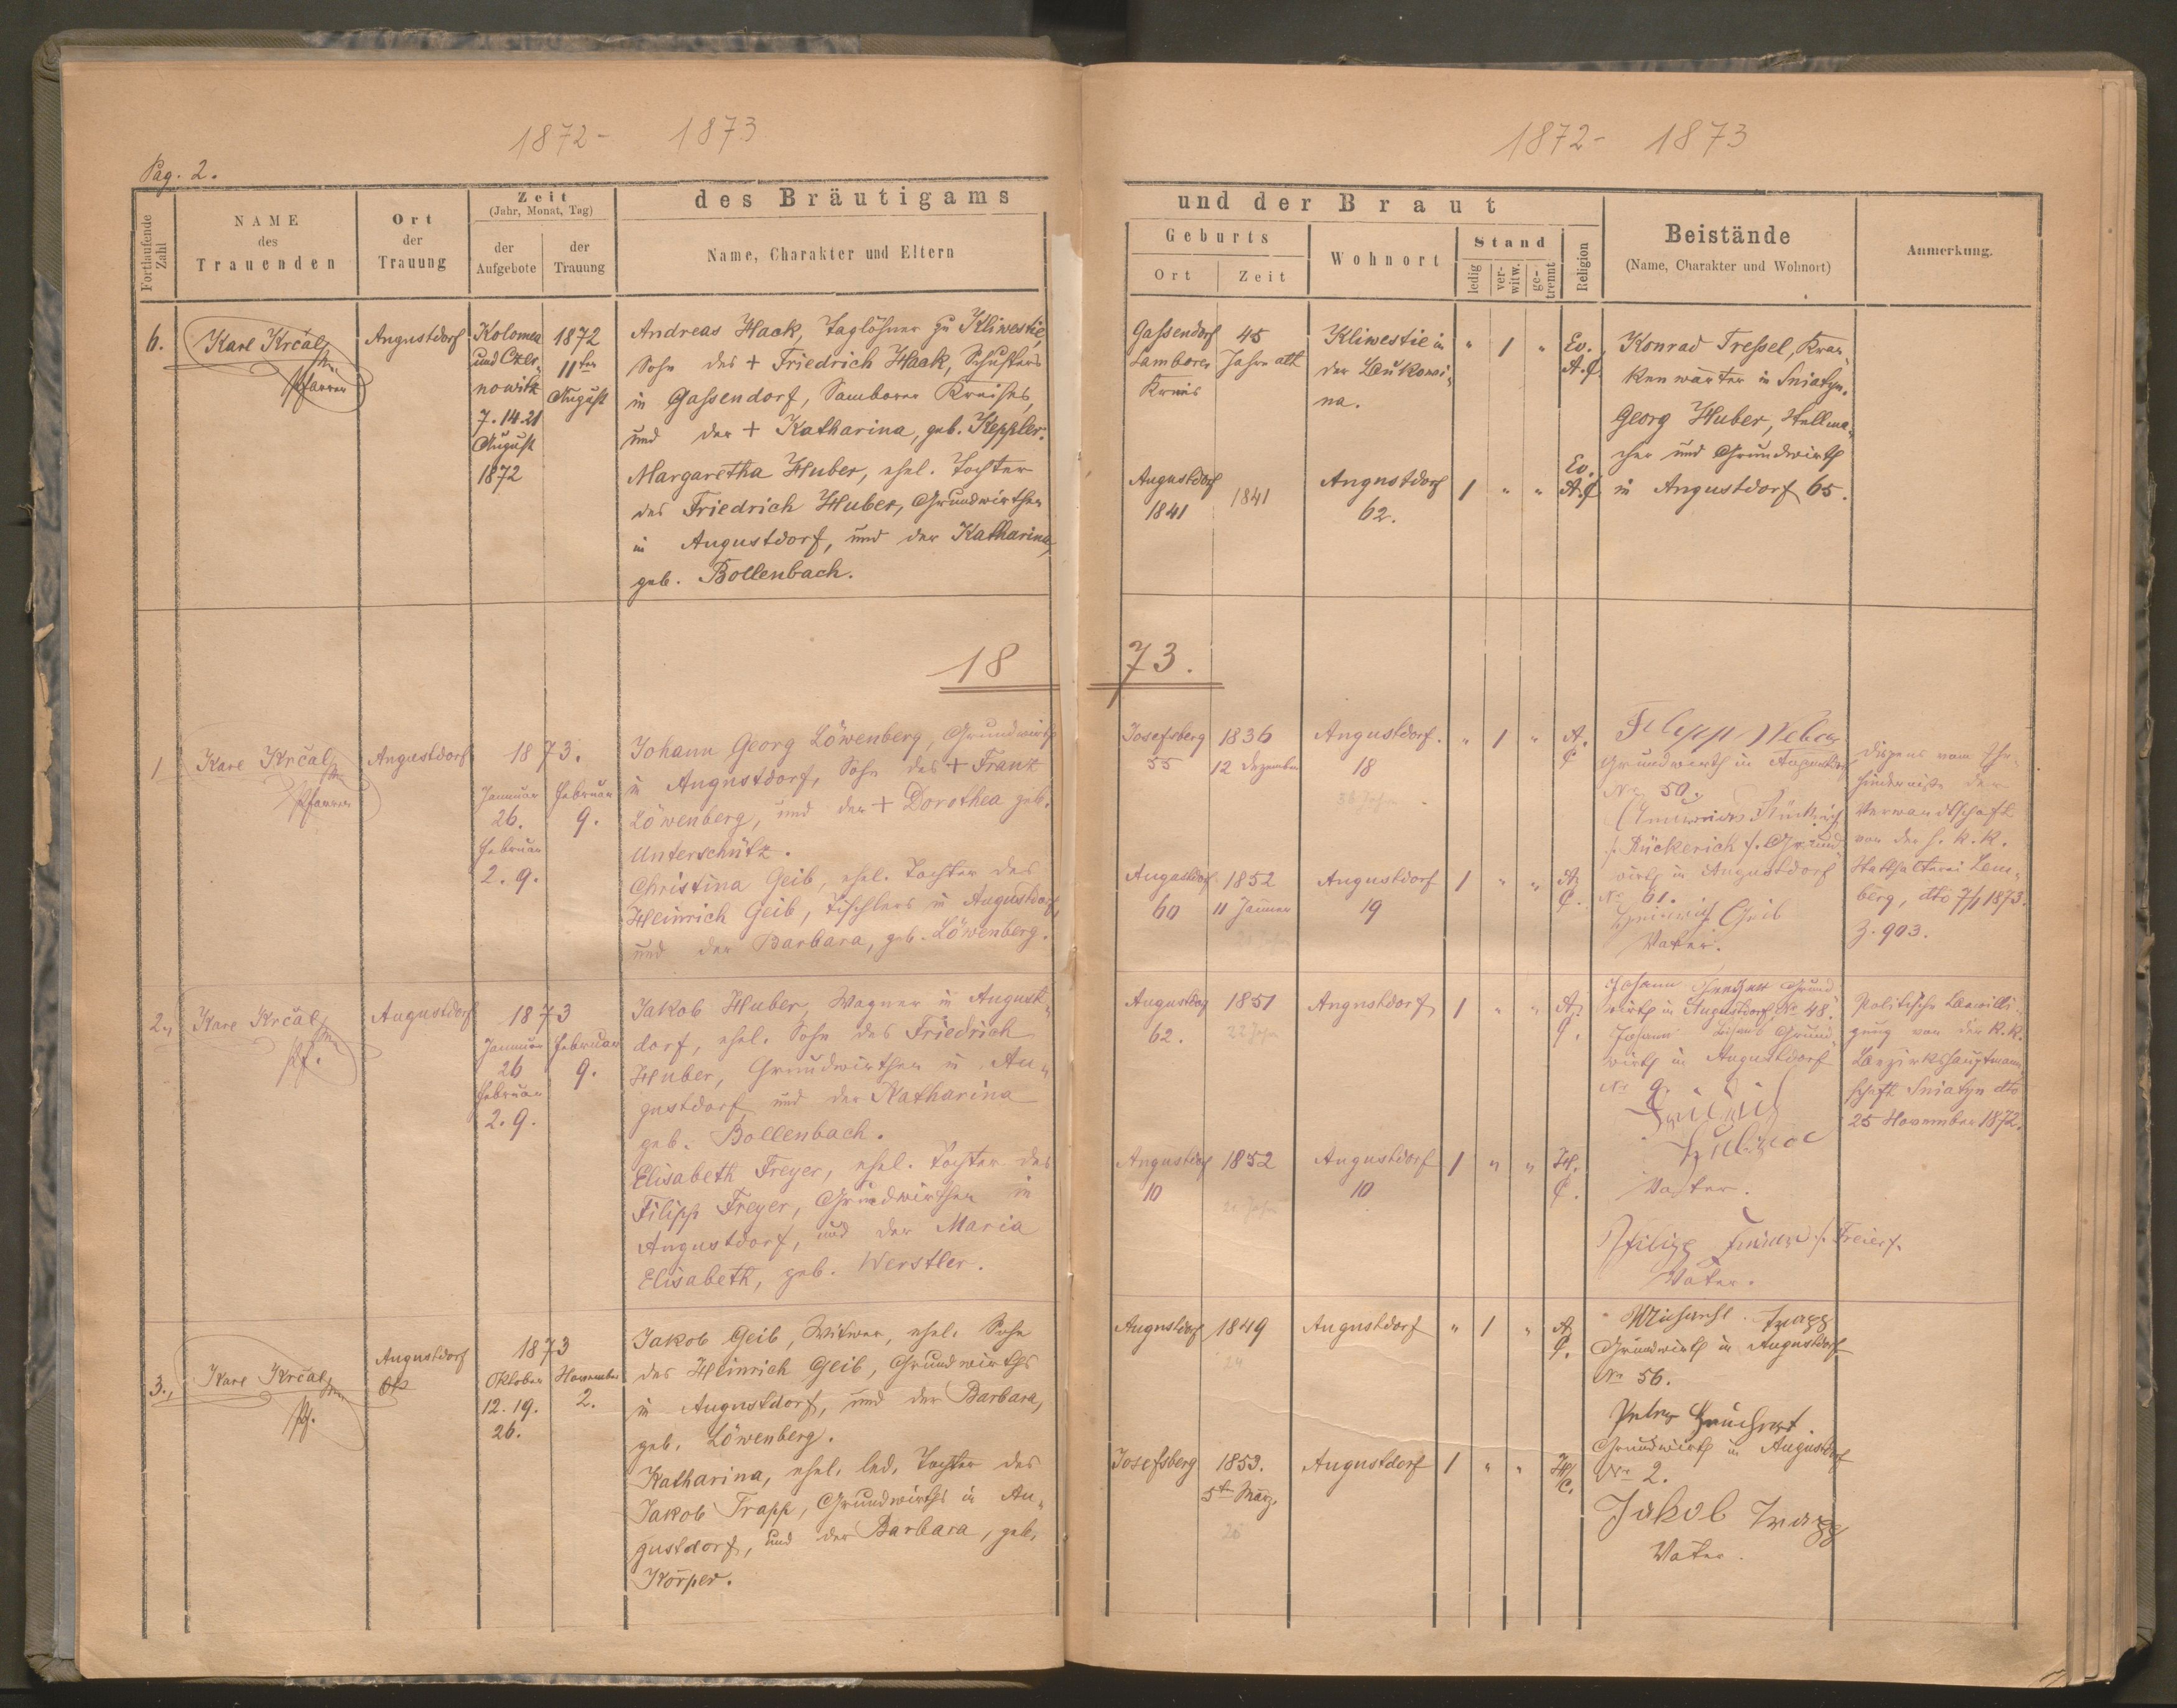 1872 - 1873
Pag. 2.
Fortlaufende Zahl
NAME
des
Trauenden
Ort
der
Trauung
Zeit
(Jahr, Monat, Tag)
der
Aufgebote
der
Trauung
des Bräutigams
Name, Charakter und Eltern
6.
Karl Krčal
Pfarrer
Augustdorf
Kolomea
und Czer-
nowitz
7. 14. 21
August
1872
1872
11ten
August
Andreas Haak, Taglöhner zu Kliwestie,
Sohn des + Friedrich Haak, Schusters
in Gaßendorf, Samborer Kreises,
und der + Katharina, geb. Keppler.
Margaretha Huber, ehel. Tochter
des Friedrich Huber, Grundwirthen
in Augustdorf, und der Katharina,
geb. Bollenbach.
18
1
Karl Krčal
Pfarrer
Augustdorf
1873.
Januar
26.
Februar
2. 9.
Februar
9.
Johann Georg Löwenberg, Grundwirth
in Augustdorf, Sohn des + Franz
Löwenberg, und der + Dorothea geb.
Unterschütz.
Christina Geib, ehel. Tochter des
Heinrich Geib, Tischlers in Augustdorf,
und der Barbara, geb. Löwenberg.
2.,
Karl Krčal
Pf.
Augustdorf
1873
Januar
26
Februar
2. 9.
Februar
9.
Jakob Huber, Wagner in August-
dorf, ehel. Sohn des Friedrich
Huber, Grundwirthen in Au-
gustdorf und der Katharina
geb. Bollenbach.
Elisabeth Freyer, ehel. Tochter des
Filipp Freyer, Grundwirthen in
Augustdorf, und der Maria
Elisabeth, geb. Werstler.
3.,
Karl Krčal
Pf.
Augustdorf
1873
Oktober
12. 19.
26.
November
2.
Jakob Geib, Witwer, ehel. Sohn
des Heinrich Geib, Grundwirths
in Augustdorf, und der Barbara,
geb. Löwenberg.
Katharina, ehel. led. Tochter des
Jakob Trapp, Grundwirths in Au-
gustdorf, und der Barbara, geb.
Körper.
1872 - 1873
und der Braut
Geburts
Ort
Zeit
Wohnort
Stand
ledig
ver-
witw.
ge-
trennt
Religion
Beistände
(Name, Charakter und Wohnort)
Anmerkung.
Gaßendorf
Samborer
Kreis
45
Jahre alt
Kliwestie in
der Bukowi-
na.
" 1 "
Ev.
A.C.
Konrad Treßel, Kran-
kenwärter in Sniatyn.
Georg Huber, Stellma-
cher und Grundwirth
in Augustdorf 65.
Augustdorf
1841
1841
Augustdorf
62.
1 " "
Ev.
A.C.
73.
Josefsberg
55
1836
12 Dezember
36 Jahre
Augustdorf.
18
" 1 "
A.
C
Filipp Weber
Grundwirth in Augustdorf
No 50.
/: Rückerich :/ Grund-
wirth in Augustdorf
No 61.
Heinrich Geib
Vater.
Dispens vom Ehe-
hinderniße der
Verwandtschaft
von der h. k. k.
Statthalterei Lem-
berg, dto 7/1 1873.
Z. 903.
Augustdorf
60
1852
11 Januar
Augustdorf
19
1 " "
A.
C.
Augustdorf
62.
1851
22 Jahre
Augustdorf
1 " "
A.
C.
Johann Grund-
wirth in Augustdorf No 48.
Johann Grund-
wirth in Augustdorf
No 9.
Fridrich
Huber
Vater.
Politische Bewilli-
gung von der k. k.
Bezirkshauptmann-
schaft Sniatyn dto
25 November 1872.
Augustdorf
10
1852
Augustdorf
10
1 " "
H.
C.
Philipp /: Freier :/
Vater.
Augustdorf
1849
24
Augustdorf
" 1 "
A.
C.
Michael Trapp
Grundwirth in Augustdorf
No 56.
Peter
Grundwirth in Augustdorf
No 2.
Josefsberg
1853.
5ten März.
20
Augustdorf
1 " "
H/
C.
Jakob Trapp
Vater.